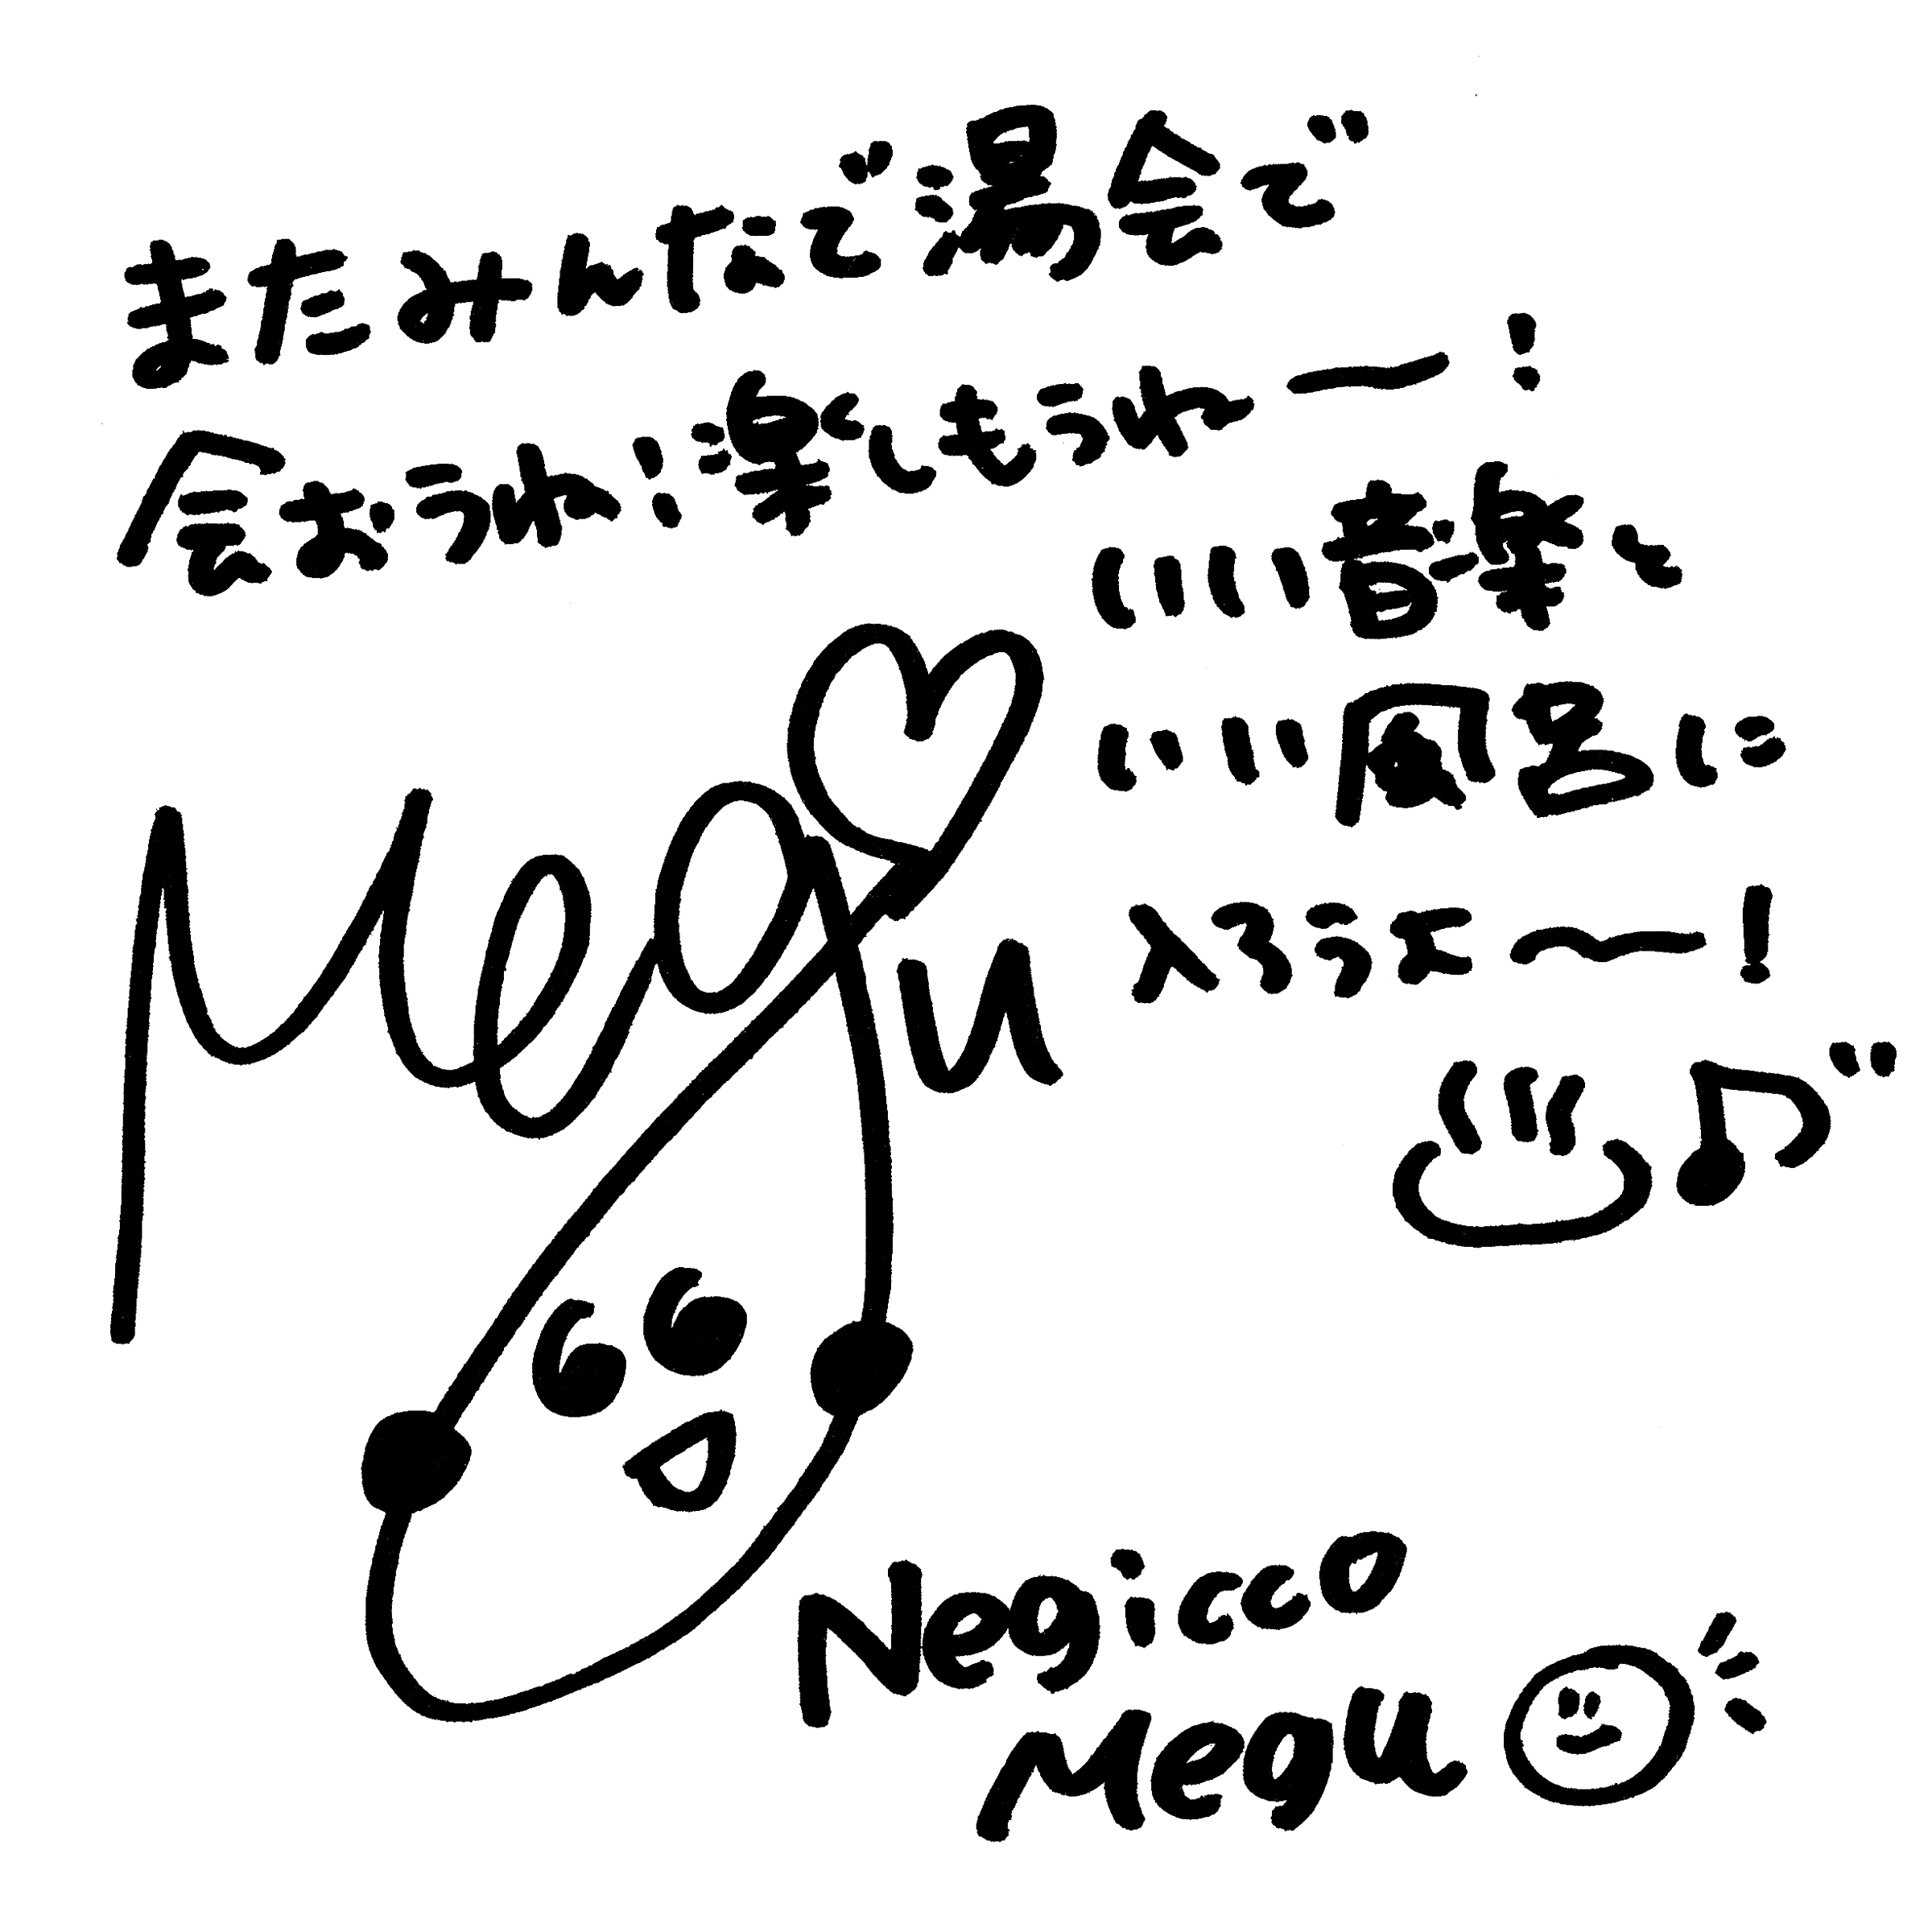 またみんなで湯会で
会おうね!楽しもうねー!
いい音楽と
いい風呂に
入ろうzー!
Megu
Negicco
Megu